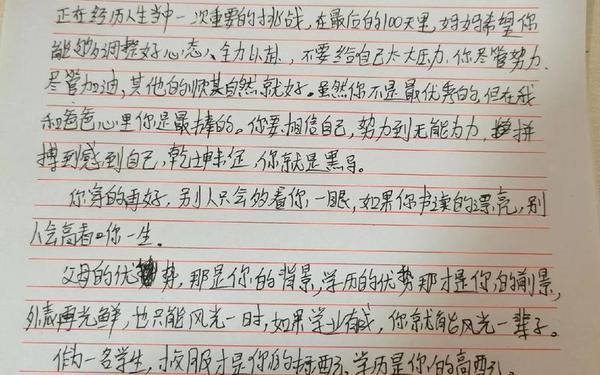 正在经历人生当中一次重要的挑战，在最后的100天里，妈妈希望你
能够调整好心态、全力以赴，不要给自己太大压力。你尽管努力
尽管加油，其他的顺其自然就好。虽然你不是最优秀的，但在我
和爸爸心里你是最捧的。你要相信自己，努力到无能为力，拼
搏到感到自己，乾坤未定，你就是黑马。
你穿的再好，别人只会够看你一眼，如果你书读的漂亮，别
人会高看你一生。
父母的优势，那是你的背景，学历的优势那才是你的前景，
外表再光鲜，也只能风光一时，如果学业有成，你就能风光一辈子。
作为一名学生，校服才是你的标配，学历是你的高配。